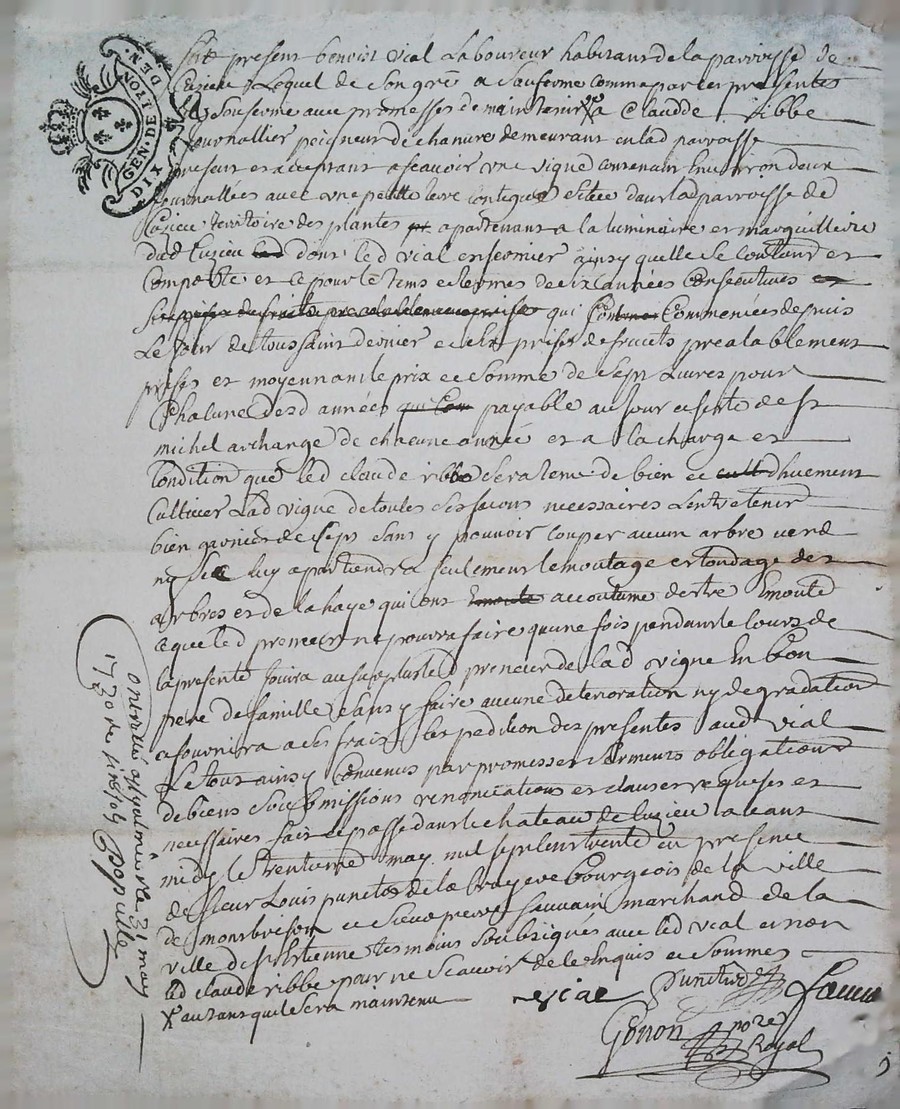 GEN. DE LION
DIX DEN.
present benoist vial Laboureur habitant de la parroisse de
Lequel de son gré a sauferme comme par ces presentes
Souferme avec promesses de maintenir X a Claudde ribbe
Journallier peigneur de chanvre demeurant en lad parroisse
present et acceptant a scavoir une vigne contenant Environ deux
Journallées avec une petitte terre contigue scituée dans lad parroisse de
Luzieu territoire des plantes apartenant a la luminaire et marguilleire
dud Luzieu dont led vial en fermier ainsy quelle se contient et
Comporte et ce pour le tems et termes de six années Consecutives
qui Commencées depuis
Le jour de toussaint dernier prises de fruits prealablement
prises et moyennant le prix et somme de sept Livres pour
Chacune desd années payable au jour et feste de st
michel archange de chacune année et a la charge et
Condition que led claude ribbe sera tenu de bien et duement
Cultiver Lad vigne de toutes ses facons necessaires Lentretenir
bien garnie de seps sans y pouvoir couper aucun arbre verd
ny sec luy apartiendra seulement lemontage et tondage des
arbres et de la haye qui ont accoutume destre Emonté
ce que led preneur ne pourra faire qu'une fois pendant le cours de
la presente Jouira au surplus led preneur de lad vigne En bon
pere de famille sans y faire aucune deterioration ny degradation
et fournira a ses frais Expedition des presentes aud vial
Le tout ainsy Convenus par promesses serments obligations
de biens soubmissions renonciations et clauses requises et
necessaires fait et passé dans le chateau de Luzieu avant
midy le trentieme may mil sept cent trente en presence
de sieur Louis punctis de la bruyere bourgeois de la ville
de monbrison et sieur pierre sauvain marchand de la
ville de st Etienne tesmoins soubsignés avec led vial et non
led claude ribbe pour ne scavoir de ce Enquis et sommés
X autant quil sera maintenu
vial Punctis Sauvain
Gonon nore Royal
Controllé a st galmier le 31 may
1730